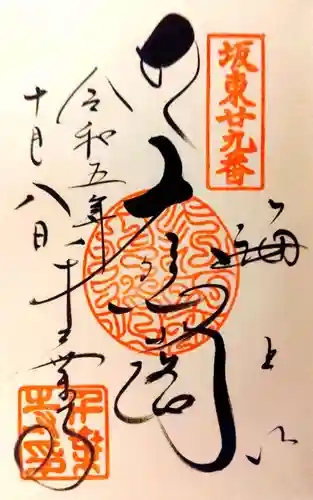 坂東廿九番
海上山
大悲閣
令和五年
十月八日
千葉寺